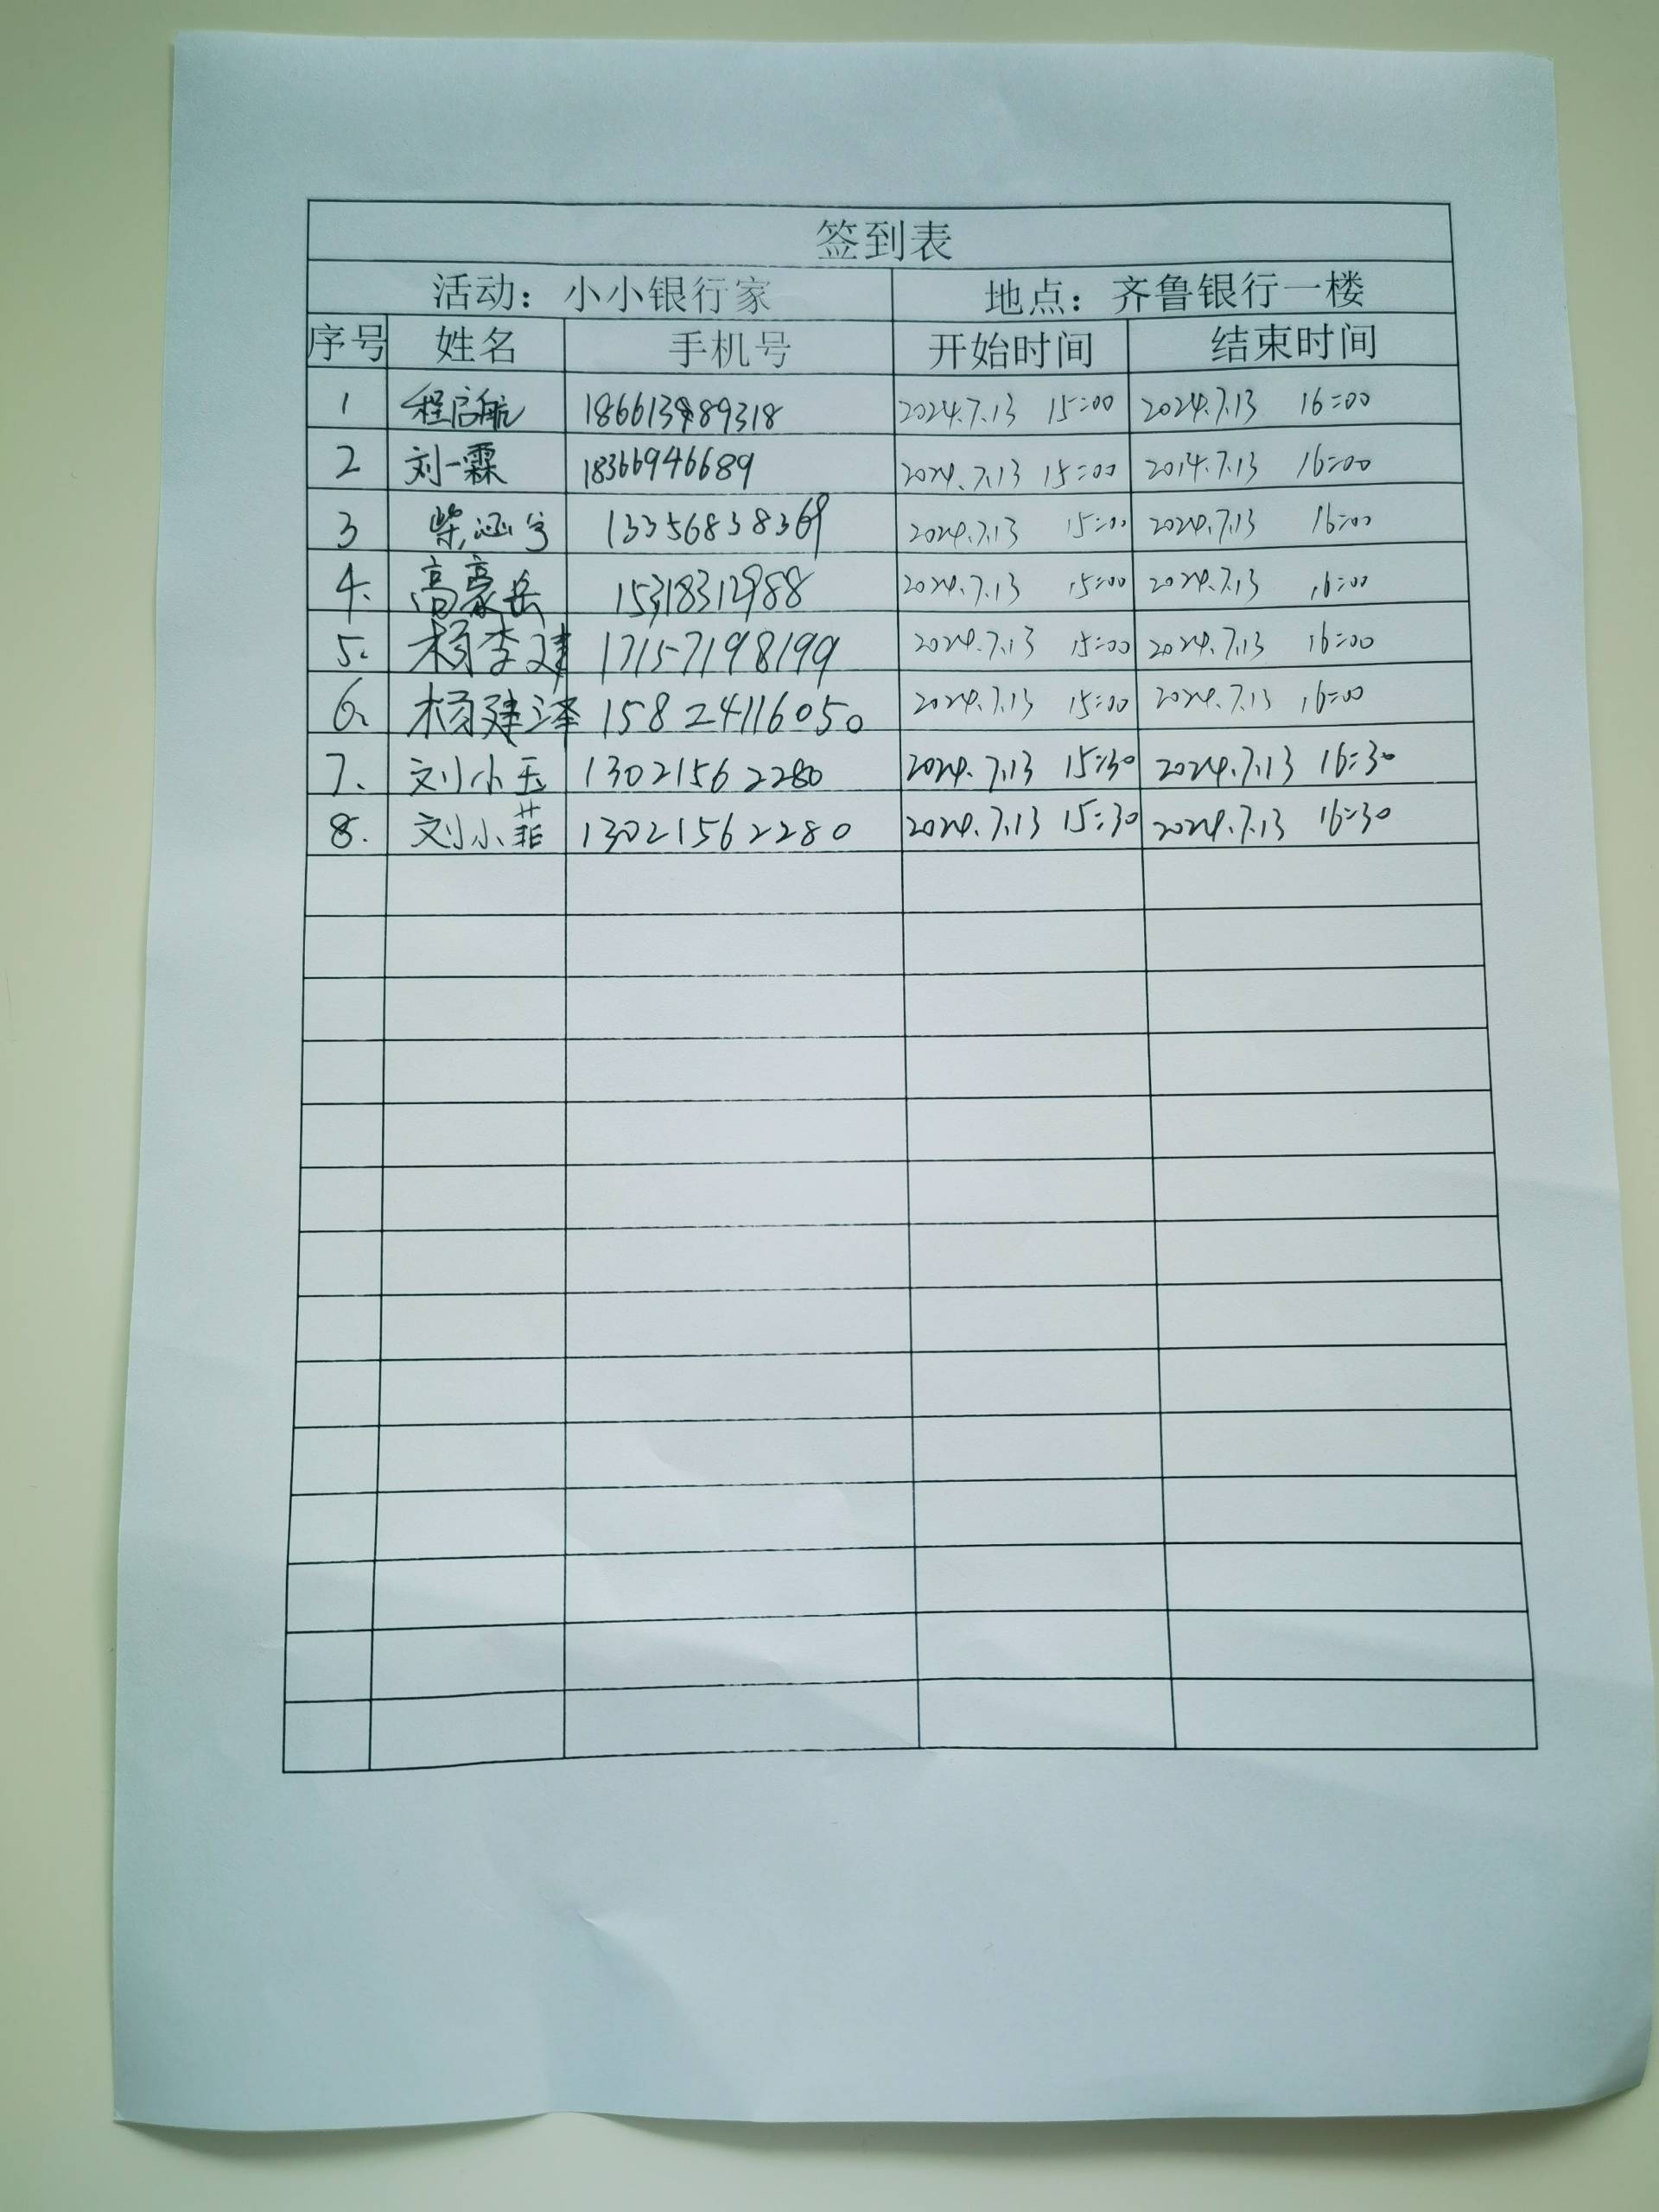 签到表
活动：小小银行家 地点：齐鲁银行一楼
序号 姓名 手机号 开始时间 结束时间
1 程启航 18661389318 2024.7.13 15:00 2024.7.13 16:00
2 刘一霖 18366946689 2024.7.13 15:00 2014.7.13 16:00
3 柴涵宇 13356838369 2024.7.13 15:00 2024.7.13 16:00
4. 高豪岳 15318312988 2024.7.13 15:00 2024.7.13 16:00
5. 杨李建 17157198199 2024.7.13 15:00 2024.7.13 16:00
6. 杨建泽 15824116050 2024.7.13 15:00 2024.7.13 16:00
7. 刘小玉 13021562280 2024.7.13 15:30 2024.7.13 16:30
8. 刘小菲 13021562280 2024.7.13 15:30 2024.7.13 16:30